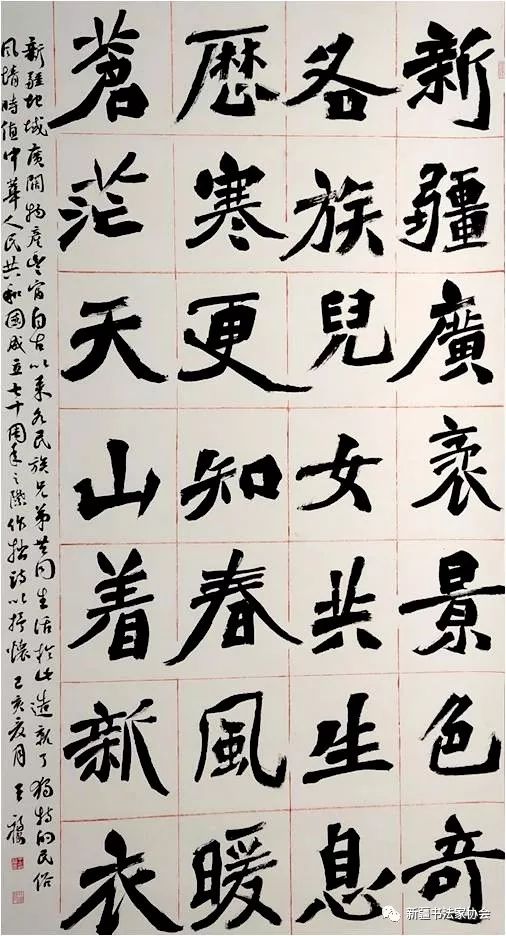 新疆廣袤景色奇
各族兒女共生息
歷寒更知春風暖
蒼茫天山着新衣
新疆地域廣闊物產豐富自古以來各民族兄弟共同生活於此造就了獨特的民俗
風情時值中華人民共和國成立七十周年之際作拙詩以抒懷己亥夏月王
新疆书法家协会